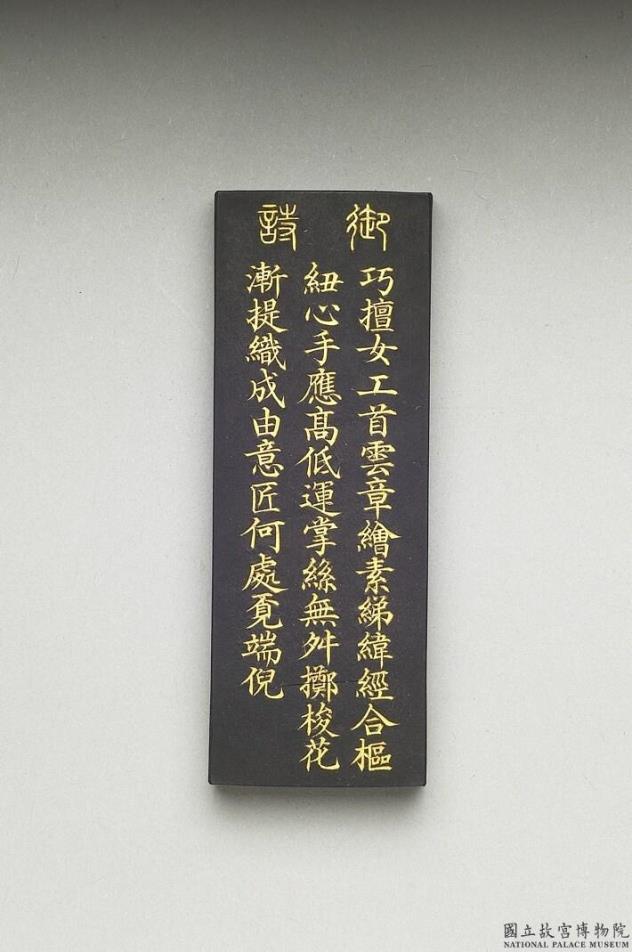 御詩
巧擅女工首雲章繪素綈緯經合樞
紐心手應髙低運掌絲無舛擲梭花
漸提織成由意匠何處覓端倪
國立故宮博物院
NATIONAL PALACE MUSEUM